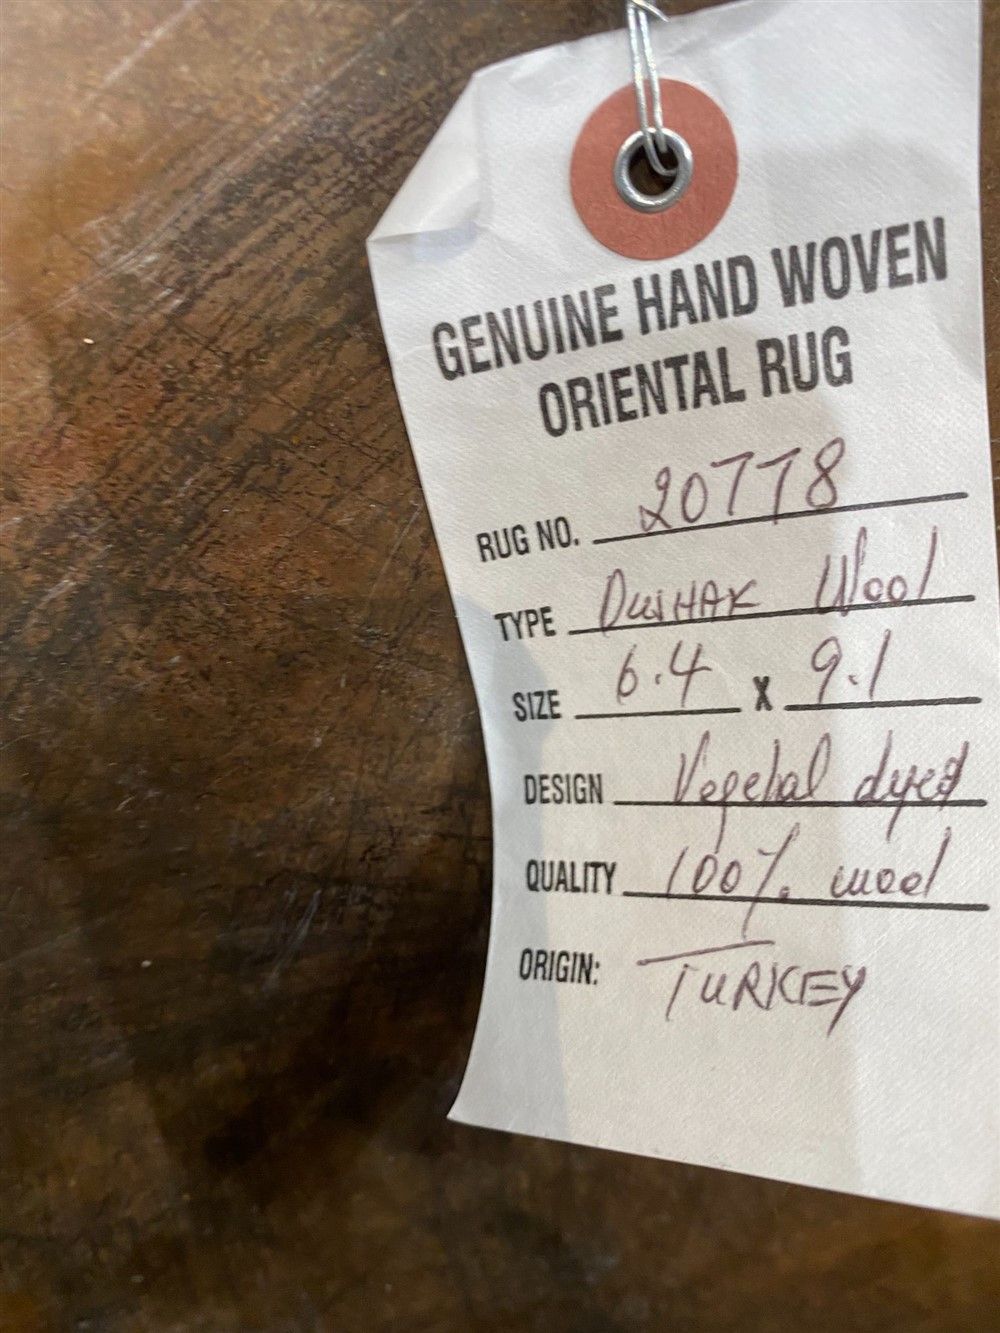 GENUINE HAND WOVEN
ORIENTAL RUG
RUG NO. 20778
TYPE Wool
SIZE 6.4 x 9.1
DESIGN Vegetal dyed
QUALITY 100% wool
ORIGIN: TURKEY